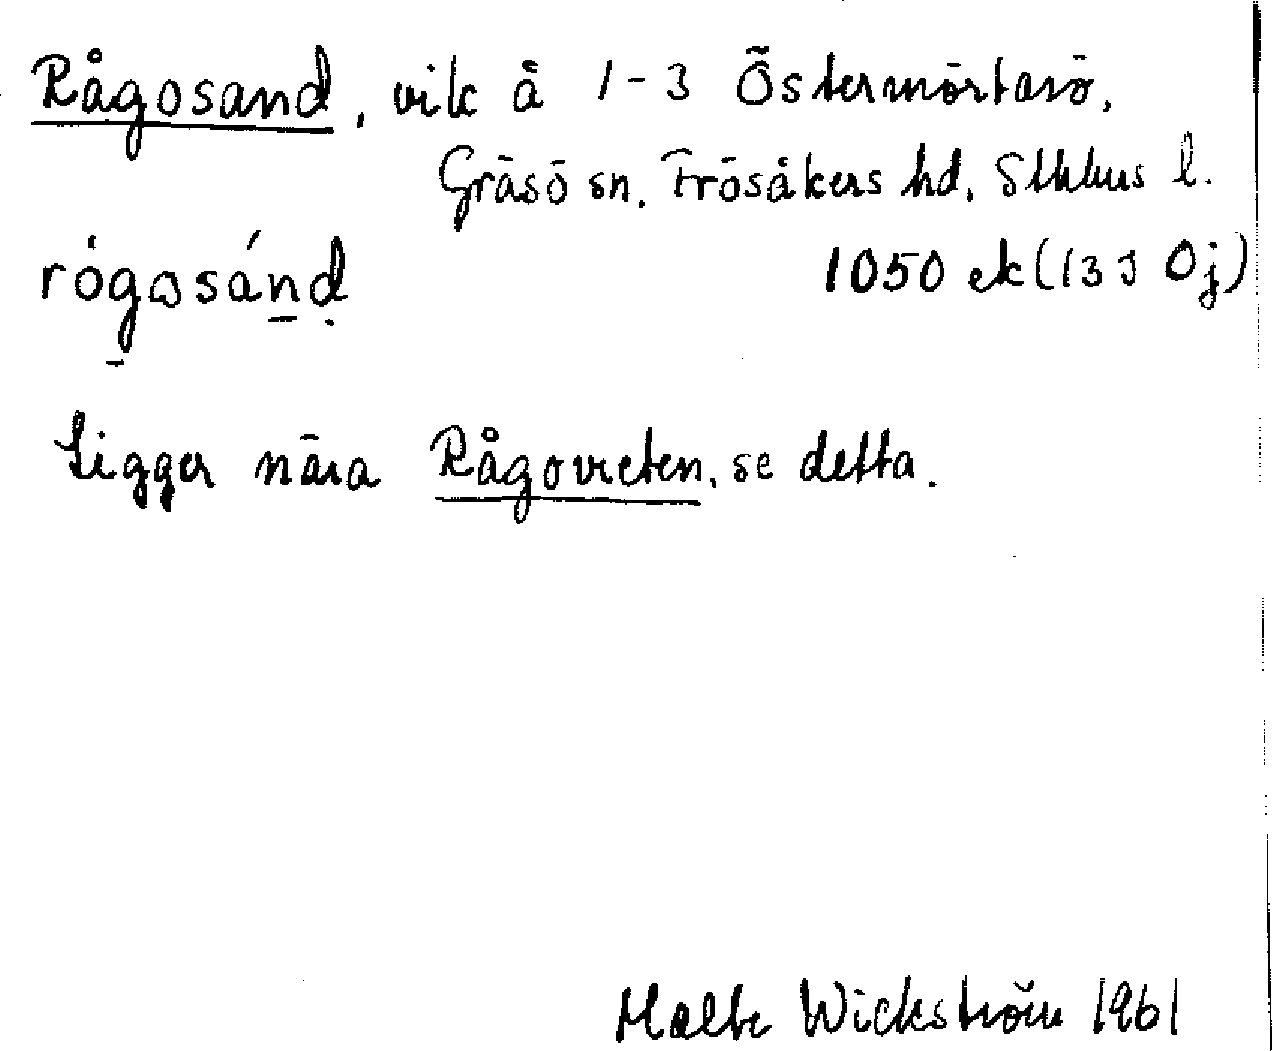 Rågosand, vik å 1-3 Östermörtarö,
Gräsö sn. Frösåkers hd, Sthlms l.
rógosánd 1050 ek (13 J Öj)
Ligger nära Rågovreten, se detta.
Malte Wickström 1961